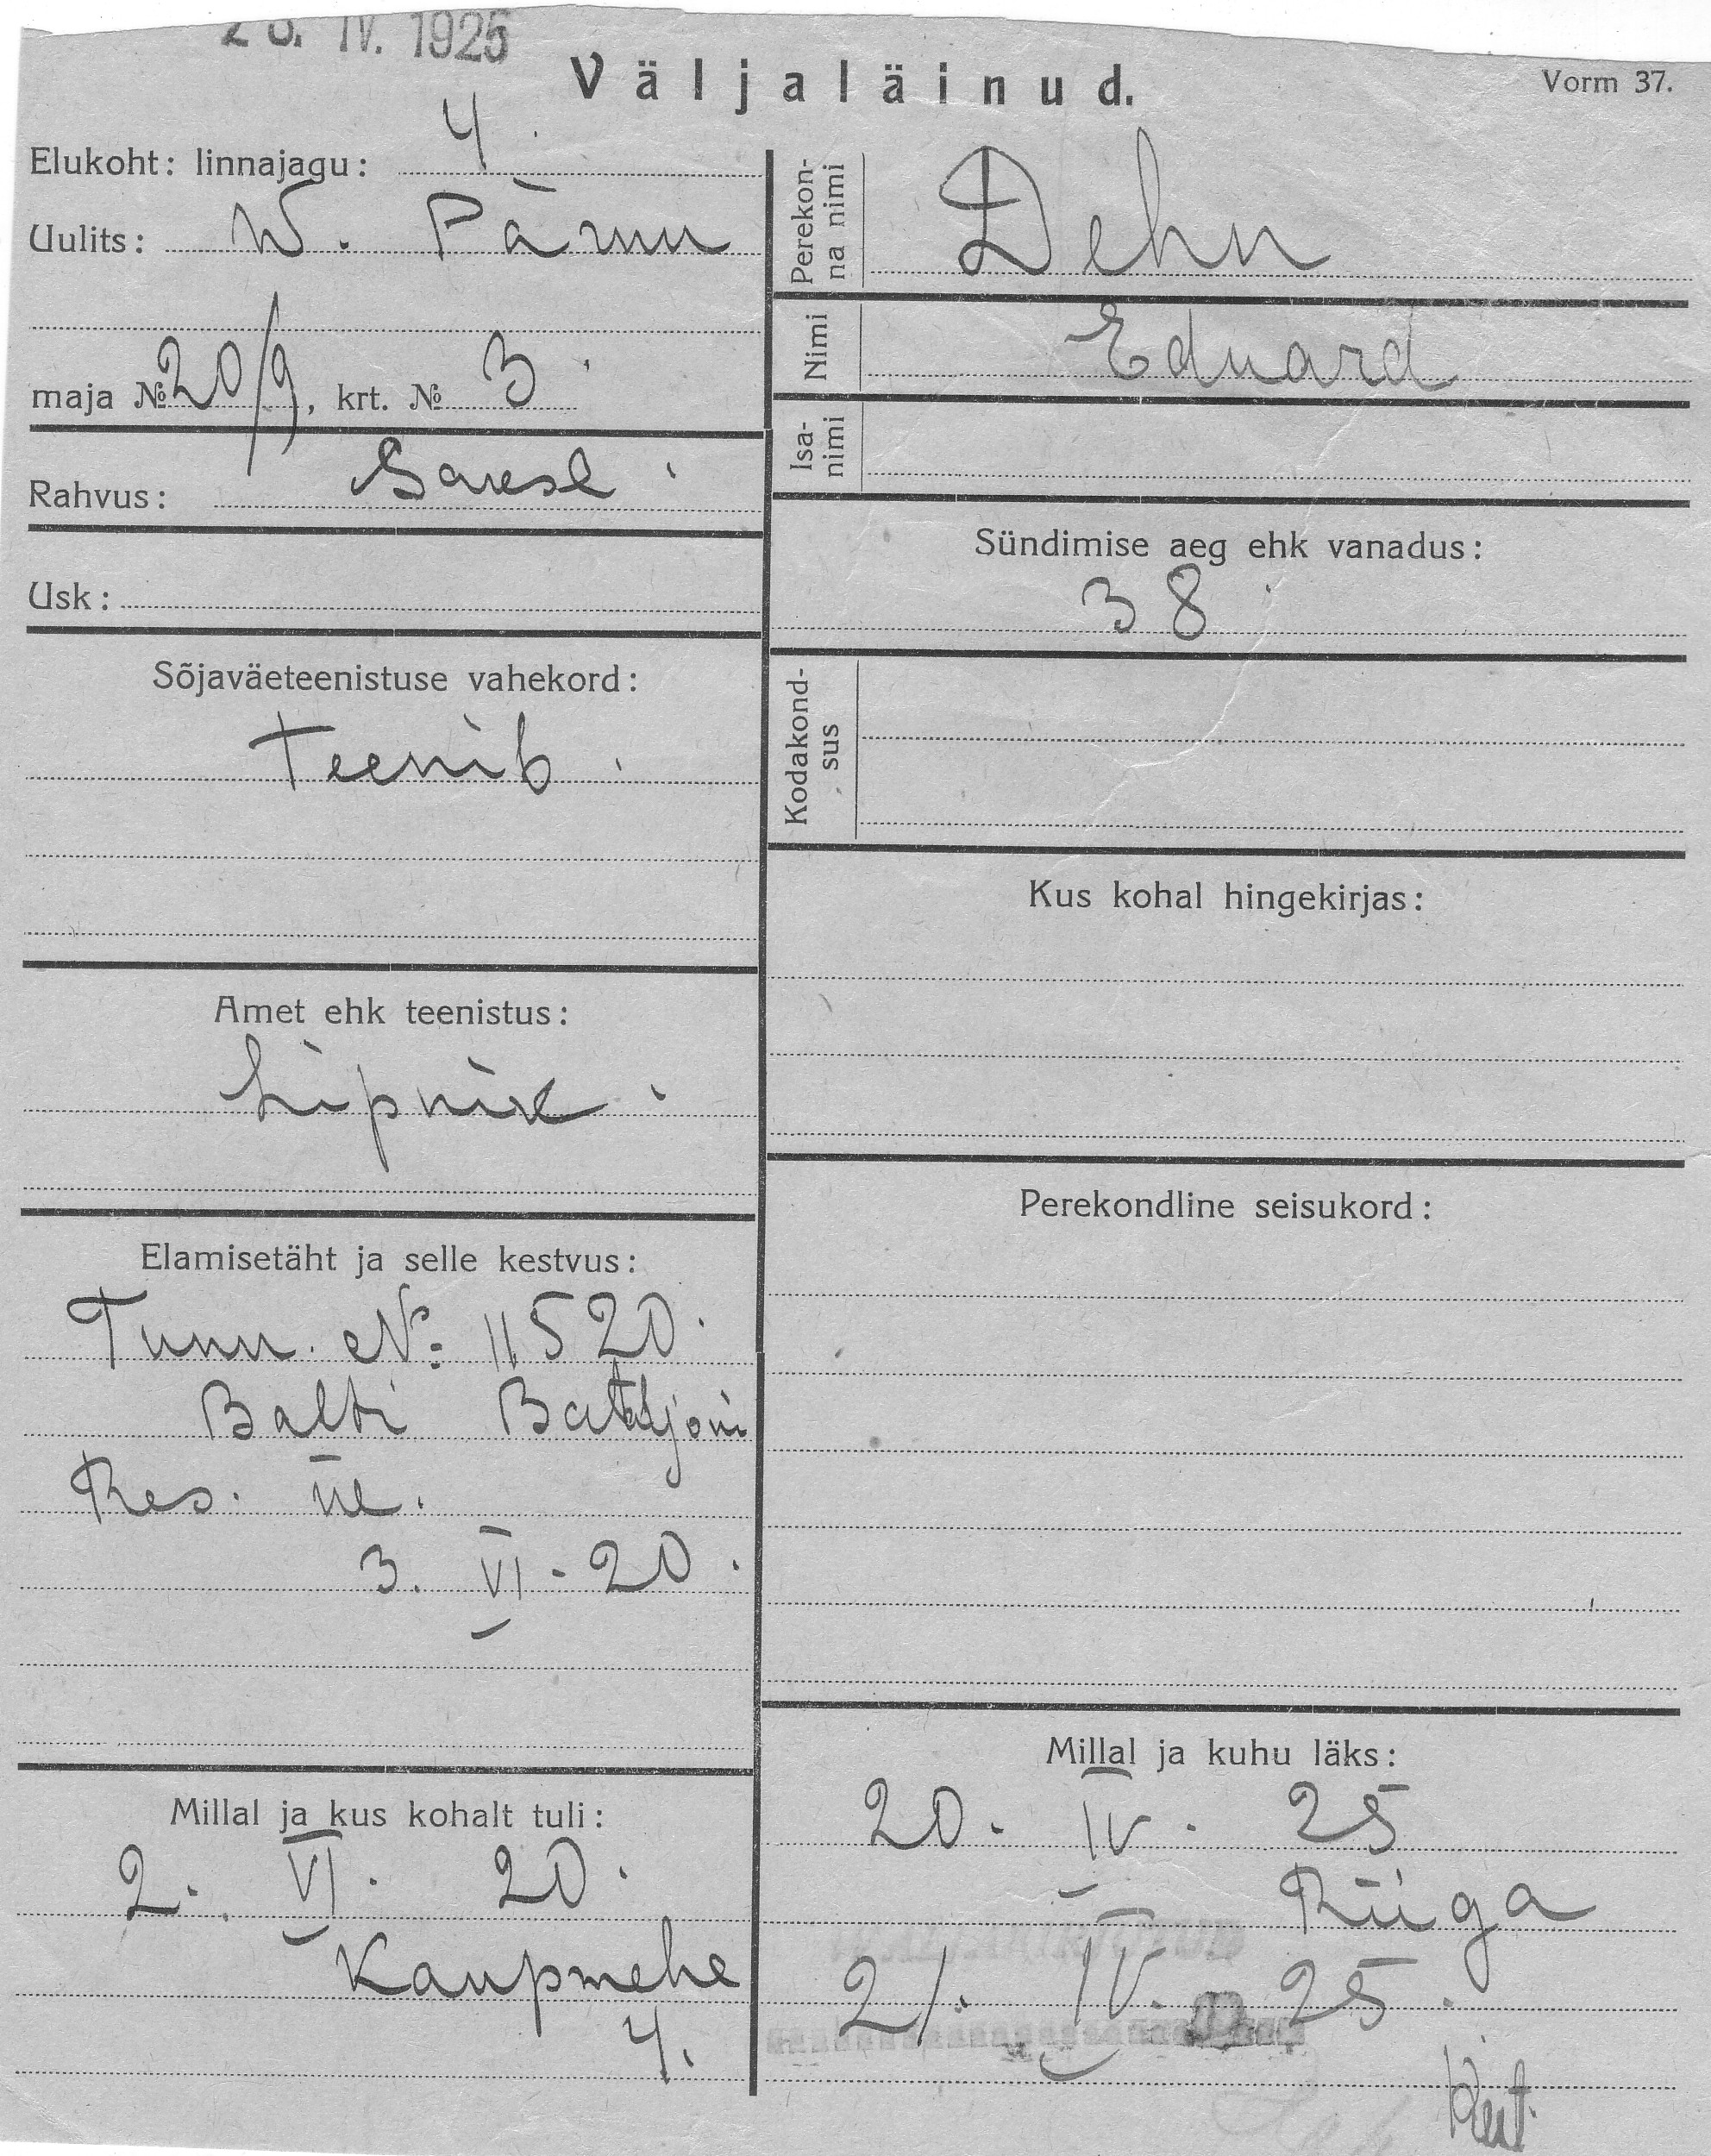 IV. 1925
Väljaläinud.
Vorm 37.
Elukoht: linnajagu: 4.
Uulits: W. Pärnu
maja № 20/9, krt. № 3.
Rahvus: Saksl.
Usk:
Sõjaväeteenistuse vahekord:
Teenib.
Amet ehk teenistus:
Lipnik.
Elamisetäht ja selle kestvus:
Tunn. №: 11520.
Balti Bataljoni
Res. ül.
3. VI. 20.
Millal ja kus kohalt tuli:
2. VI. 20.
Kaupmehe
4.
Perekonna nimi
Dehn
Nimi
Eduard
Isanimi
Sündimise aeg ehk vanadus:
38
Kodakondsus
Kus kohal hingekirjas:
Perekondline seisukord:
Millal ja kuhu läks:
20. IV. 25
Riiga
21. IV. 25.